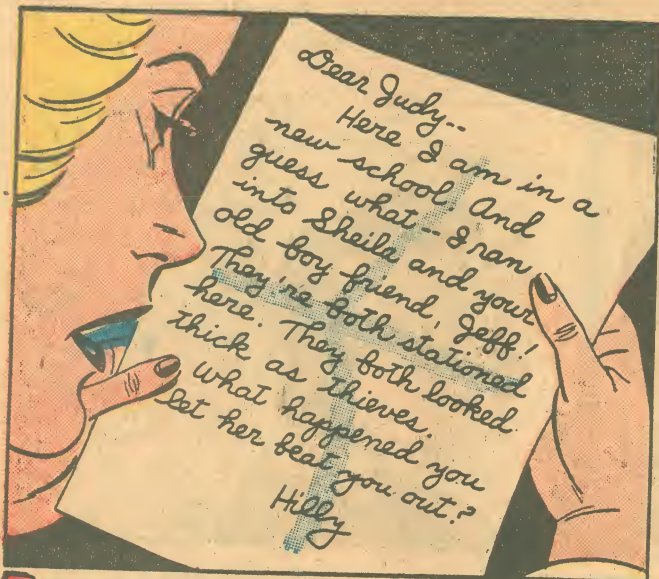 Dear Judy--
Here I am in a
new school. And
guess what-- I ran
into Sheila and your
old boy friend, Jeff!
They're both stationed
here. They both looked
thick as thieves.
what happened you
let her beat you out?
Hilly